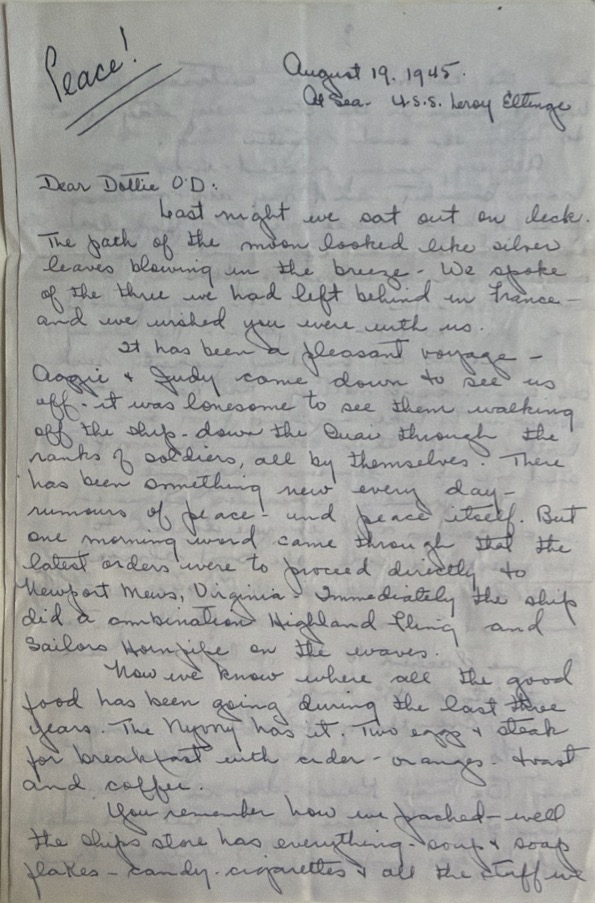 Peace!
August 19. 1945.
At Sea. U.S.S. Leroy Eltinge
Dear Dottie O'D:
Last night we sat out on deck.
The path of the moon looked like silver
leaves blowing in the breeze - We spoke
of the three we had left behind in France -
and we wished you were with us.
It has been a pleasant voyage -
Aggie & Judy came down to see us
off - it was lonesome to see them walking
off the ship - down the Quai through the
ranks of soldiers, all by themselves. There
has been something new every day -
rumours of peace - and peace itself. But
one morning word came through that the
latest orders were to proceed directly to
Newport News, Virginia - Immediately the ship
did a combination Highland Fling and
Sailors Hornpipe on the waves.
Now we know where all the good
food has been going during the last three
years. The Navy has it. Two eggs & steak
for breakfast with - oranges - toast
and coffee.
You remember how we packed - well
the ships store has everything - soap & soap
flakes - candy - cigarettes & all the stuff we